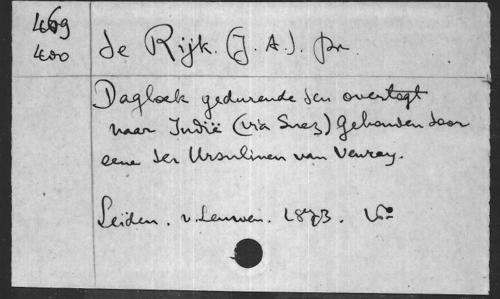 469
400
de Rijk. (J. A.). pr.
Dagboek gedurende den overtogt
naar Indië (via Suez) Gehouden door
eene der Ursulinen van Venray.
Leiden. v. Leeuwen. 1873.